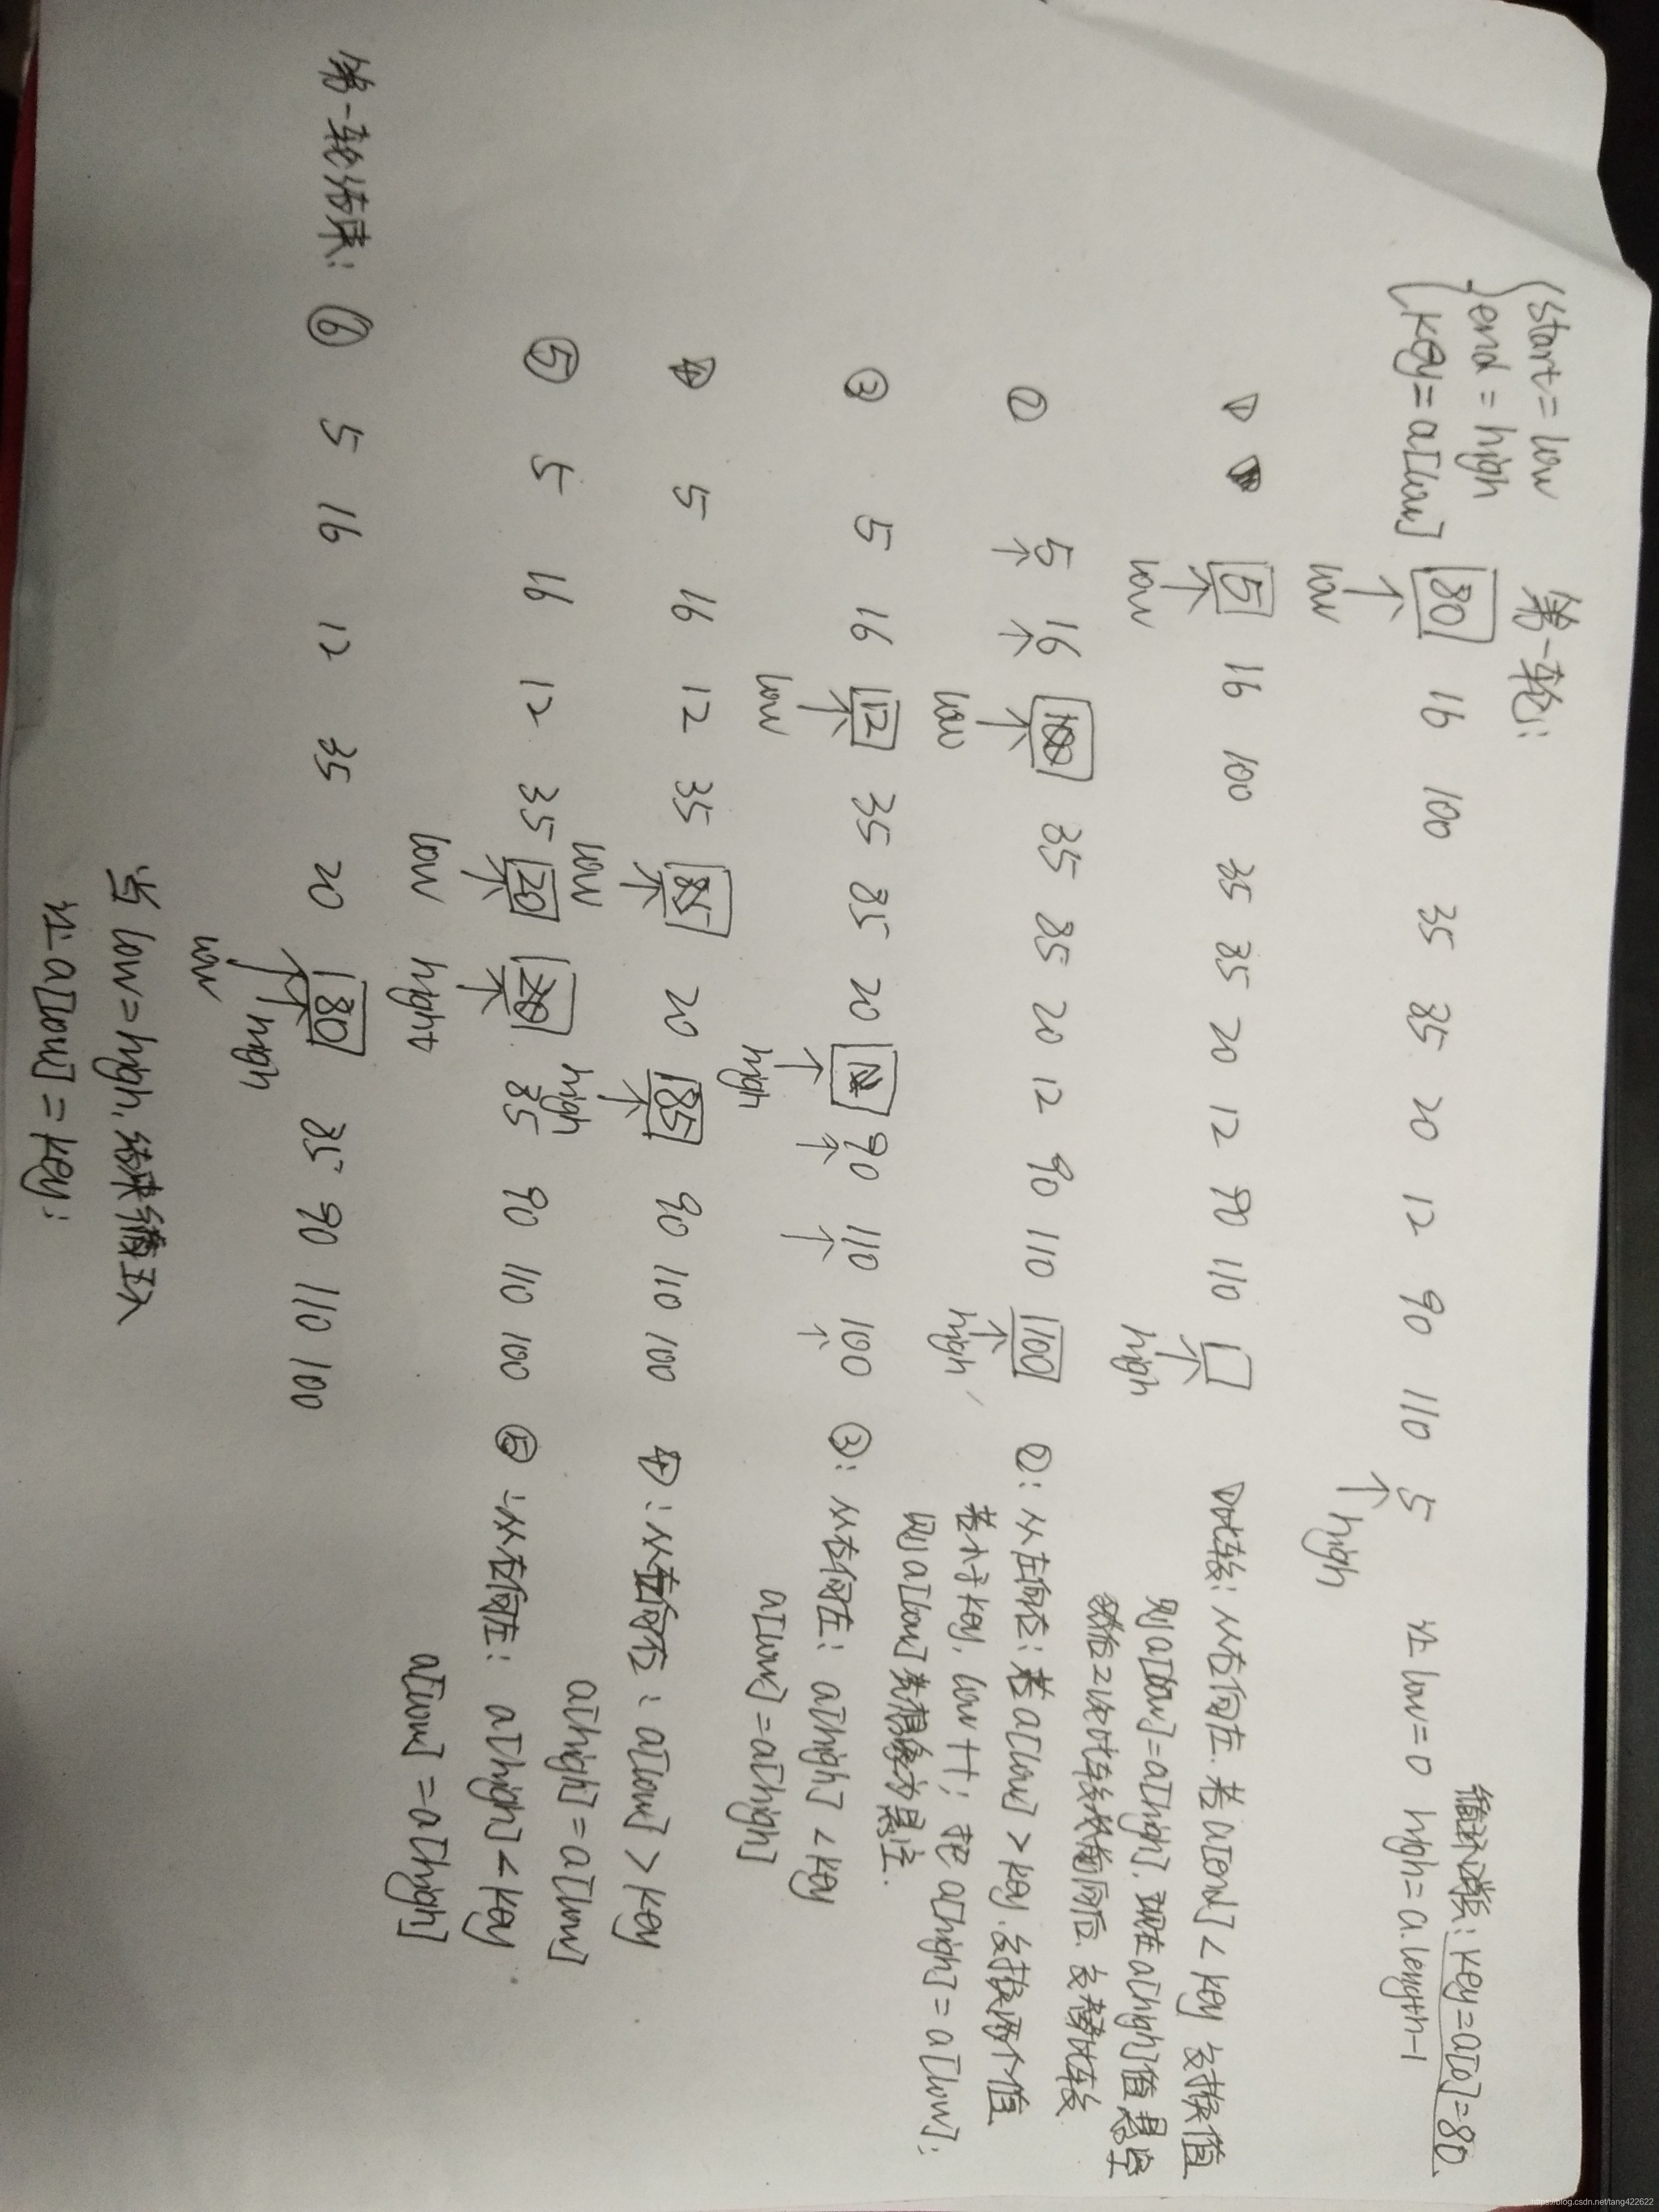 第一轮:
start = low
end = high
key = a[low]
缩进入选: key = a[0] = 80
80 16 100 35 85 20 12 90 110 5 low = 0 high = a.length-1
low high
① 5 16 100 35 85 20 12 90 110
low high
①比较: 从右向左. 若 a[end] < key 交换值
则 a[low] = a[high], 现在 a[high] 值悬空
然后2次比较从前向后. 交替比较
② 5 16 100 35 85 20 12 90 110 100
low high
②: 从左向右: 若 a[low] > key. 交换两个值
若小于 key, low ++; 把 a[high] = a[low];
则 a[low] 先想像为悬空.
③ 5 16 12 35 85 20 12 90 110 100
low high
③: 从右向左: a[high] < key
a[low] = a[high]
④ 5 16 12 35 85 20 85 90 110 100
low high
④: 从左向右: a[low] > key
a[high] = a[low]
⑤ 5 16 12 35 20 20 85 90 110 100
low high
⑤: 从右向左: a[high] < key
a[low] = a[high]
第一轮结束: ⑥ 5 16 12 35 20 80 85 90 110 100
low high
当 low = high. 结束
让 a[low] = key;
https://blog.csdn.net/tang422622